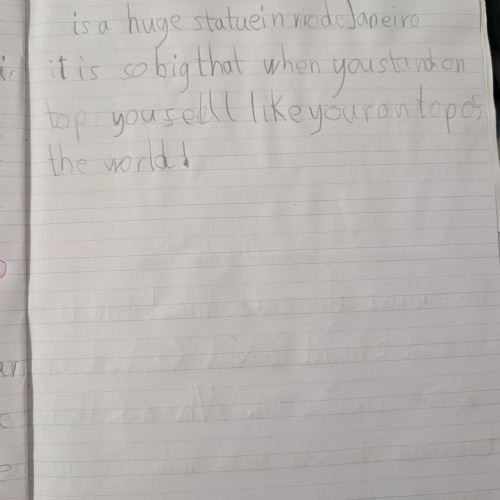 is a huge statuein riodeJaneiro
it is sobigthat when youstandon
top youfeell likeyouron topof
the world!